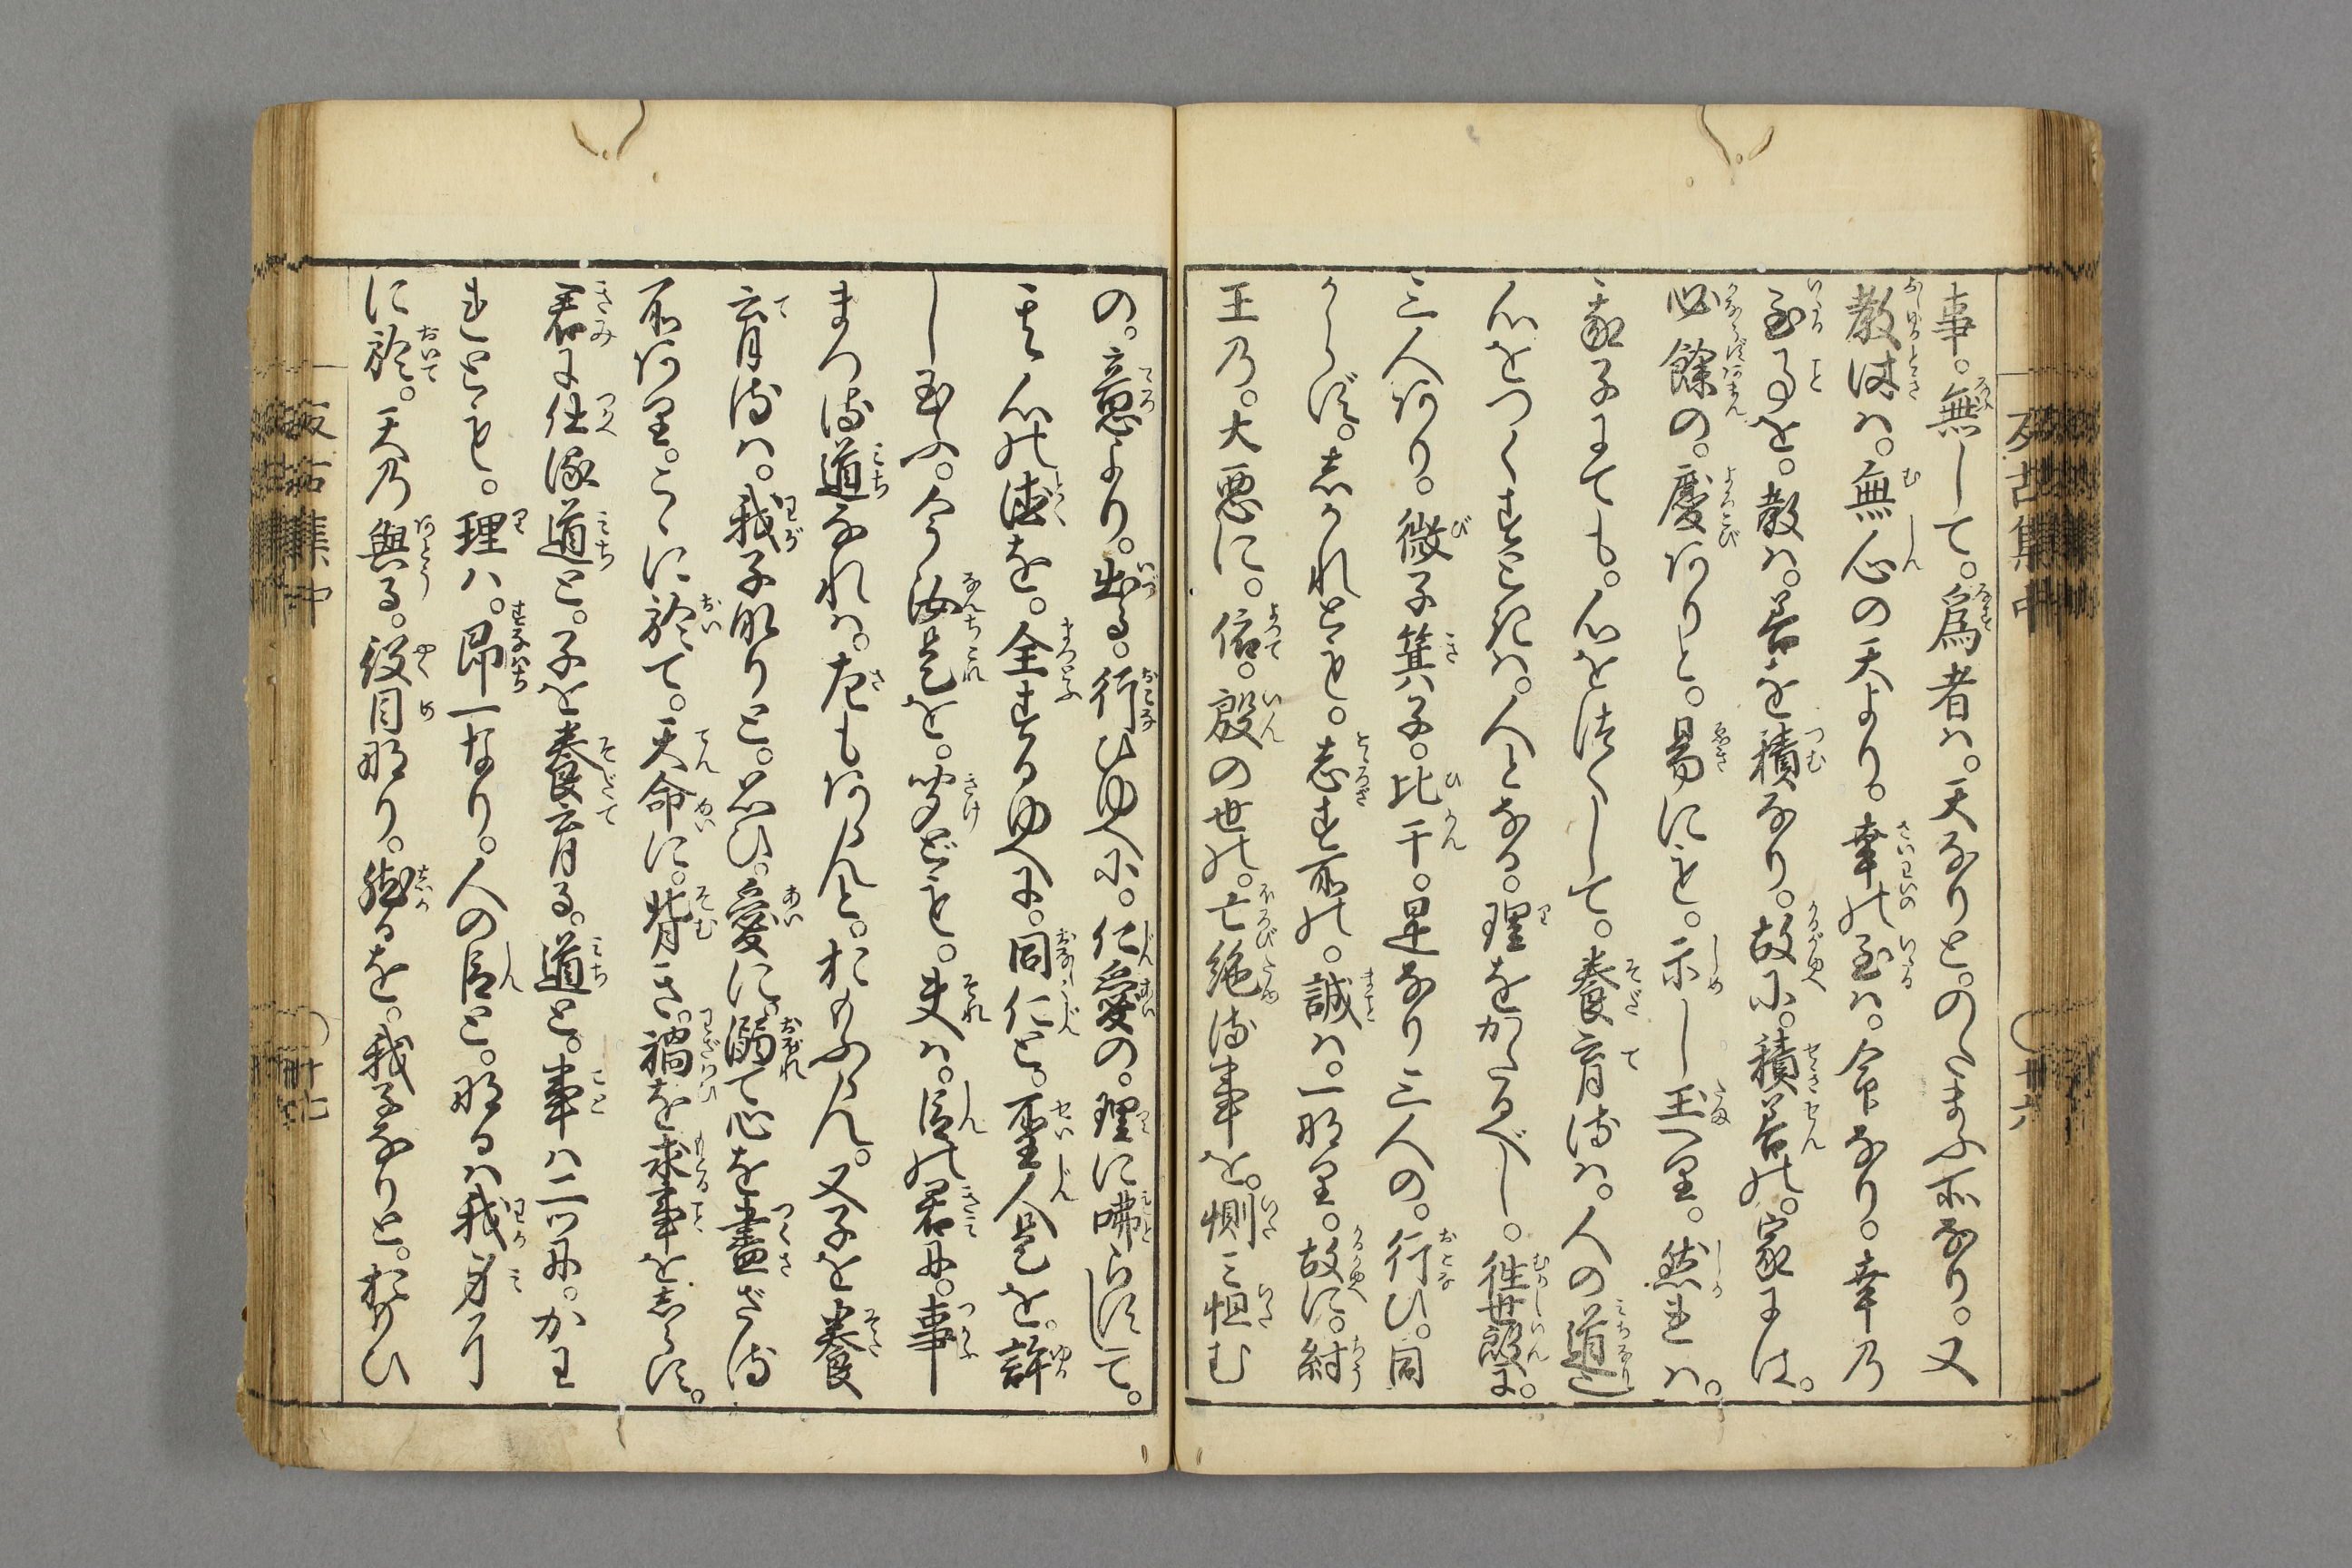 事。無して。為者ハ。天なりと。のたまふ所なり。又
教時ハ。無心の天より。幸の至ハ。命なり。幸乃
至る事を。教ハ。善を積なり。故に。積善の。家には。
必餘の。慶ありと。易にも。示し玉へり。然れハ。
我子にても。心を尽くして。養育時ハ。人の道也
心をつくすときハ。人となる。理をかたるべし。往世殷に。
三人あり。微子箕子。比干。是なり三人の。行ひ。同
からず。志かれども。志す所の。誠ハ。一なり。故に。紂
王乃。大悪に。依。殷の世の。亡絶時事を。惻ミ怛む
の。意より。出る。行ひゆへに。仁愛の。理に咈らずして。
其心の徳を。全するゆへに。同仁と。聖人是を。許
し玉ふ。今汝是を。聞ども。夫ハ。臣の君に。事
まつる道なれハ。左もあらんと。おもふらん。又子を養
育時ハ。我子なりと。思ひ。愛に。溺て心を盡ざる
所あり。こゝに於て。天命に。背き。禍を求事をしらず。
君に仕る道と。子を養育る。道と。事ハ二ツに。かわ
れども。理ハ。即一なり。人の臣と。なるハ我身
に於。天乃與る。役目なり。然るを。我子なりと。おもひ